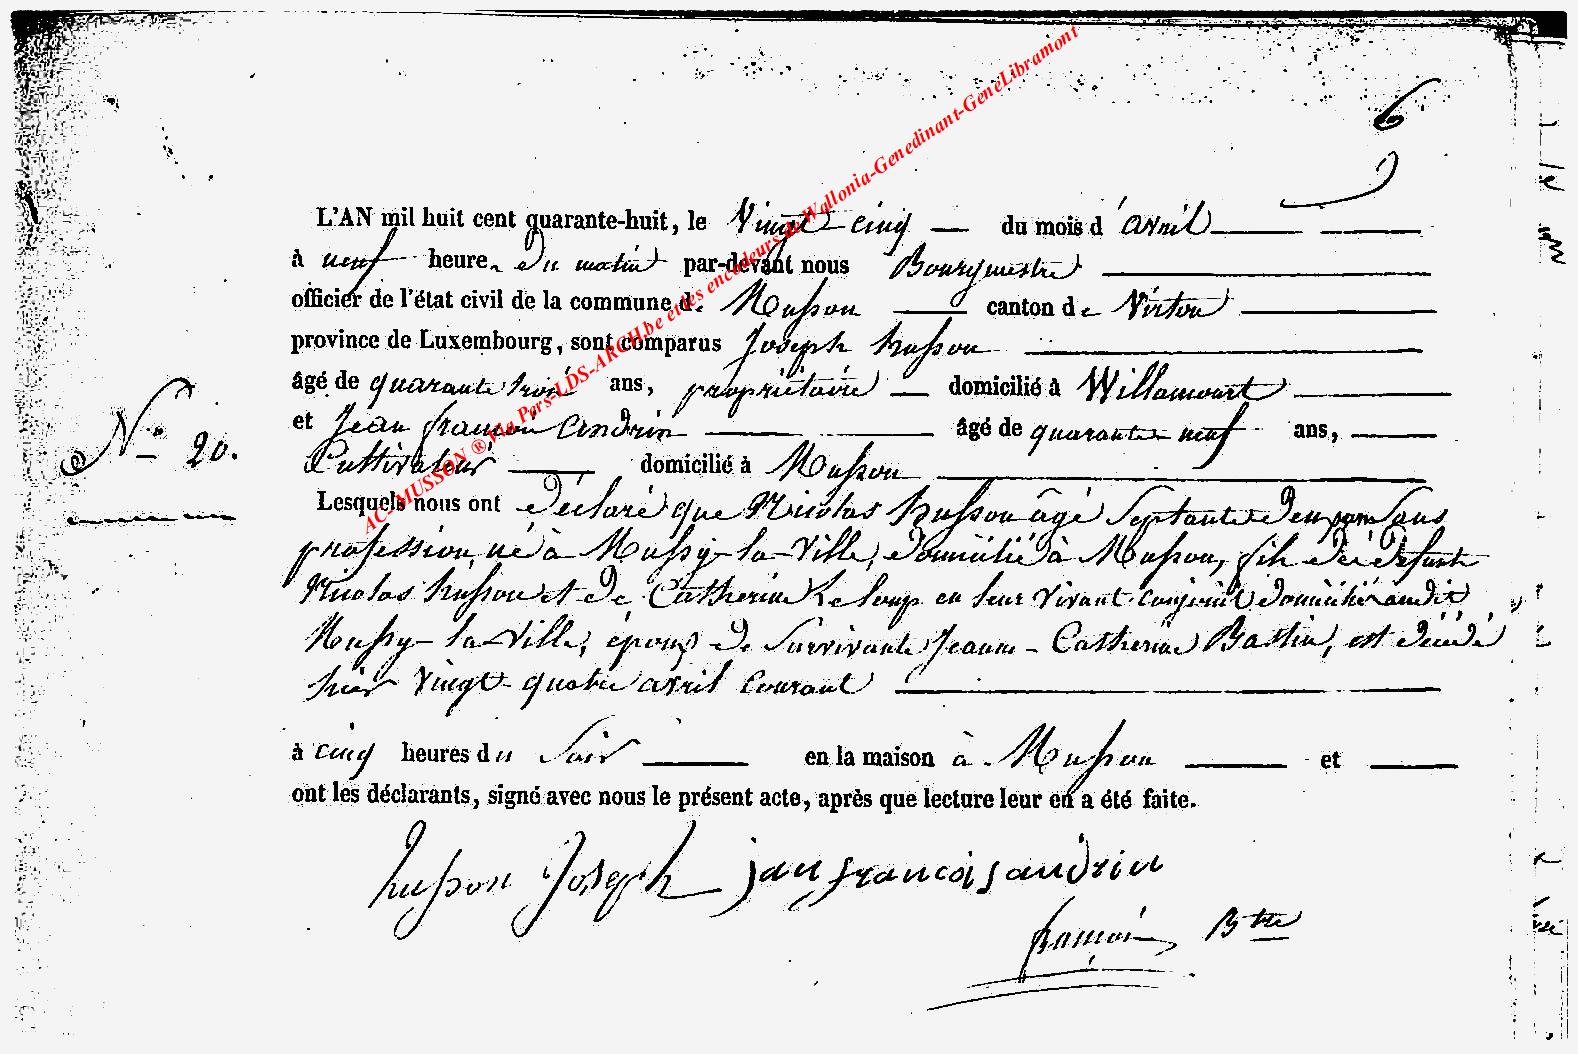 6
L'AN mil huit cent quarante-huit, le Vingt cinq du mois d'avril
à neuf heures du matin par-devant nous Bourgmestre
officier de l'état civil de la commune de Musson canton de Virton
province de Luxembourg, sont comparus Joseph husson
âgé de quarante trois ans, propriétaire domicilié à Willancourt
et Jean françois andrin âgé de quarante neuf ans,
Cultivateur domicilié à Musson
N° 20.
Lesquels nous ont déclaré que Nicolas husson âgé Septante deux ans Sans
profession, né à Mussy-la-Ville, domicilié à Musson, fils de défunts
Nicolas husson et de Catherine Leloup en leur vivant conjoints domiciliés audit
Mussy-la-Ville, époux de Survivante Jeanne-Catherine Bastin, est décédé
hier vingt-quatre avril courant
à cinq heures du Soir en la maison à Musson et
ont les déclarants, signé avec nous le présent acte, après que lecture leur en a été faite.
husson Joseph jan francois andrin
françois Btre
AC-MUSSON ® Via Pers-LDS-ARCH.be et les encodeurs de Wallonia-Genedinant-GeneLibramont